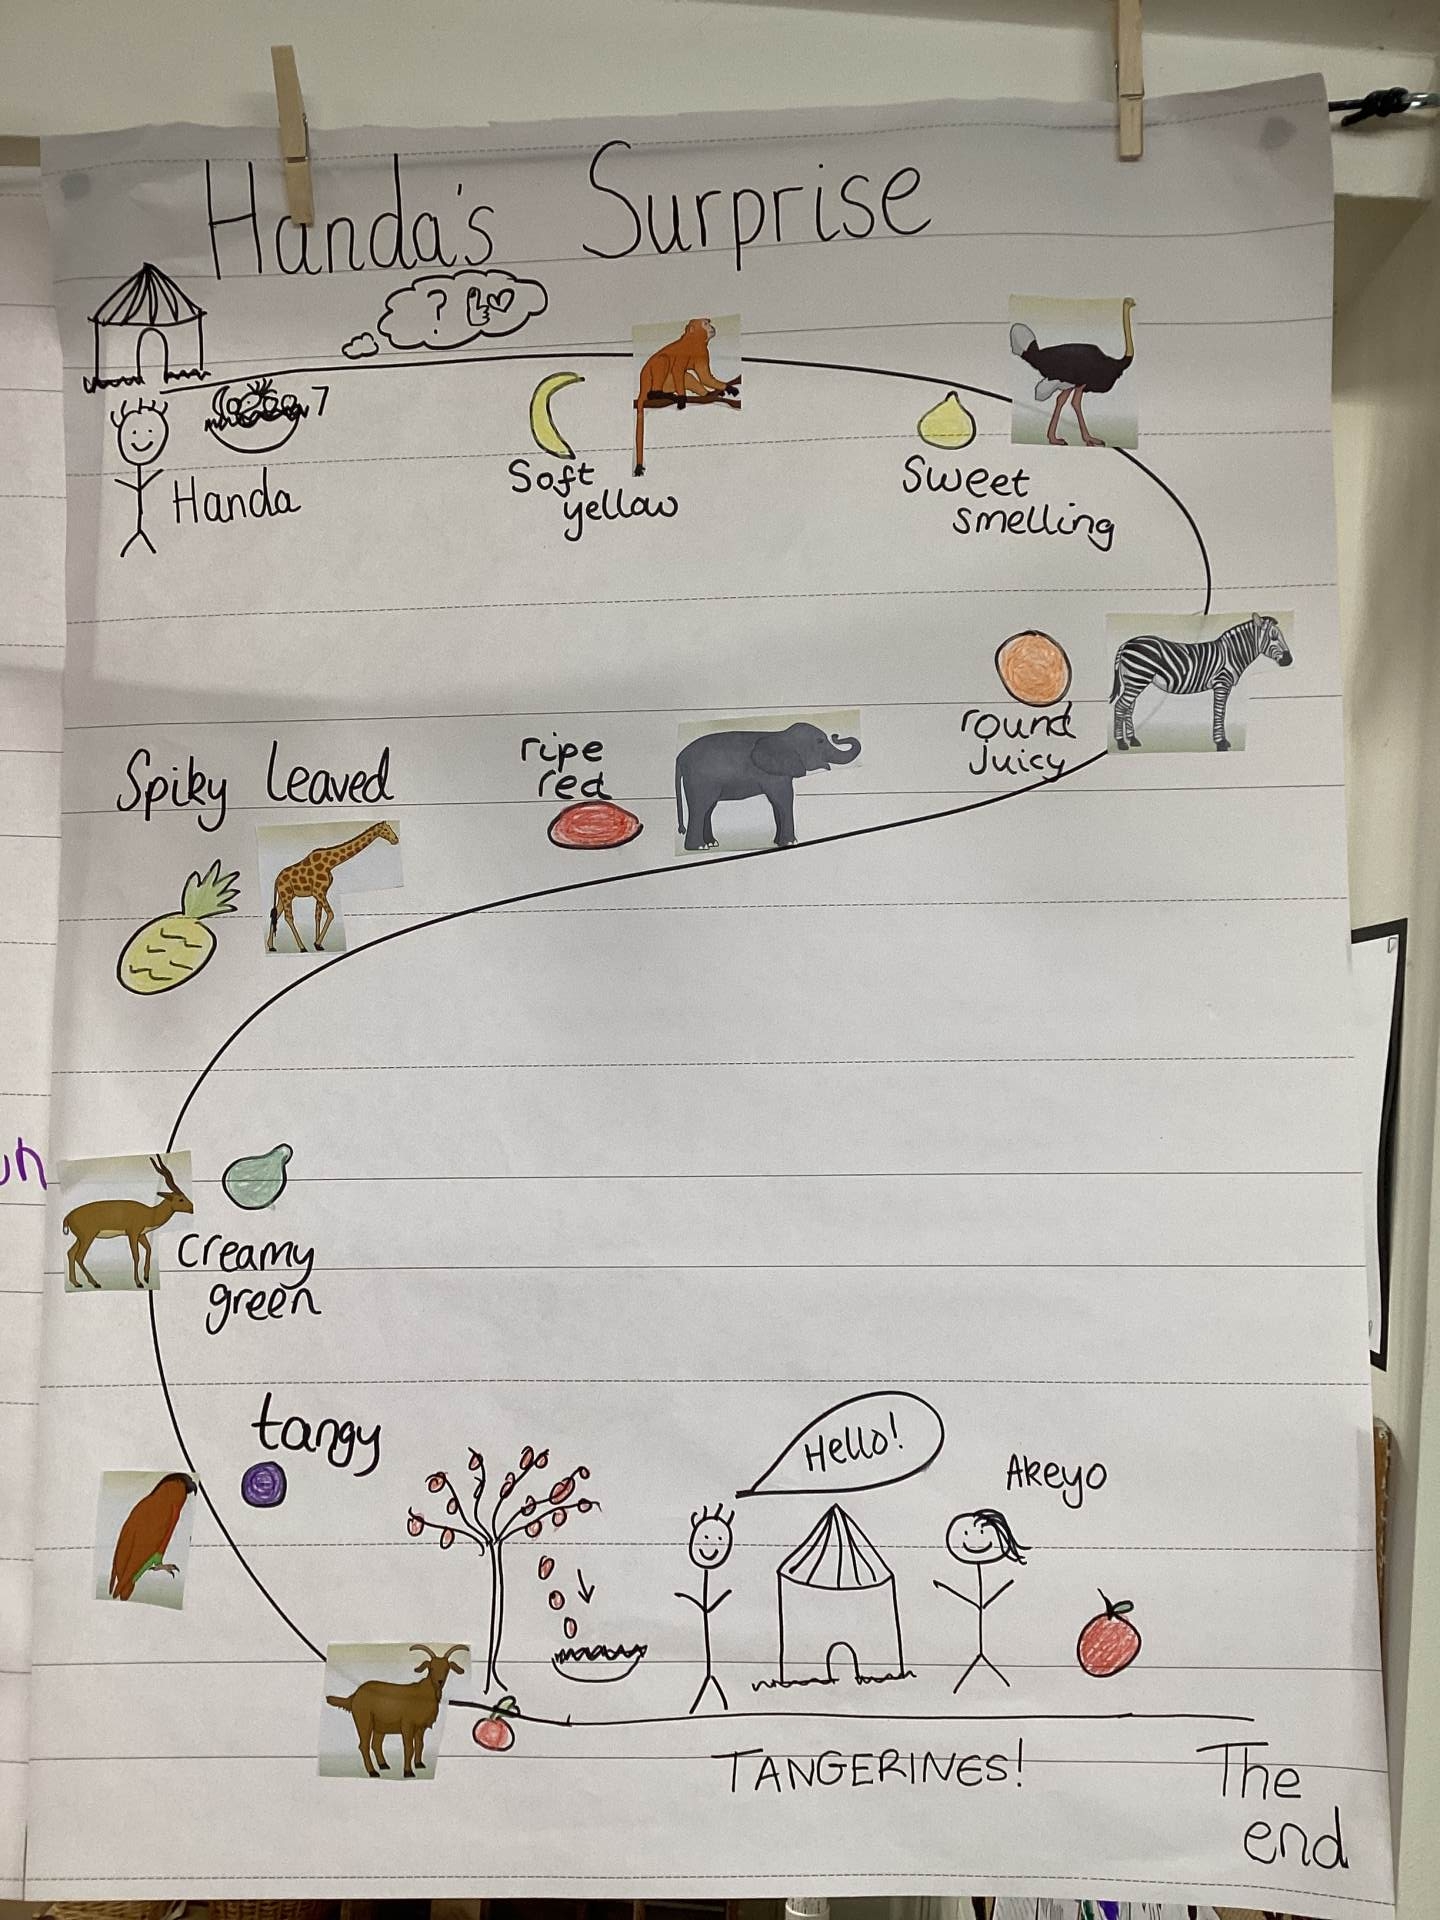 Handa's Surprise
?
7
Handa
Soft
yellow
Sweet
smelling
round
juicy
ripe
red
Spiky leaved
creamy
green
tangy
Hello!
Akeyo
TANGERINES!
The
end